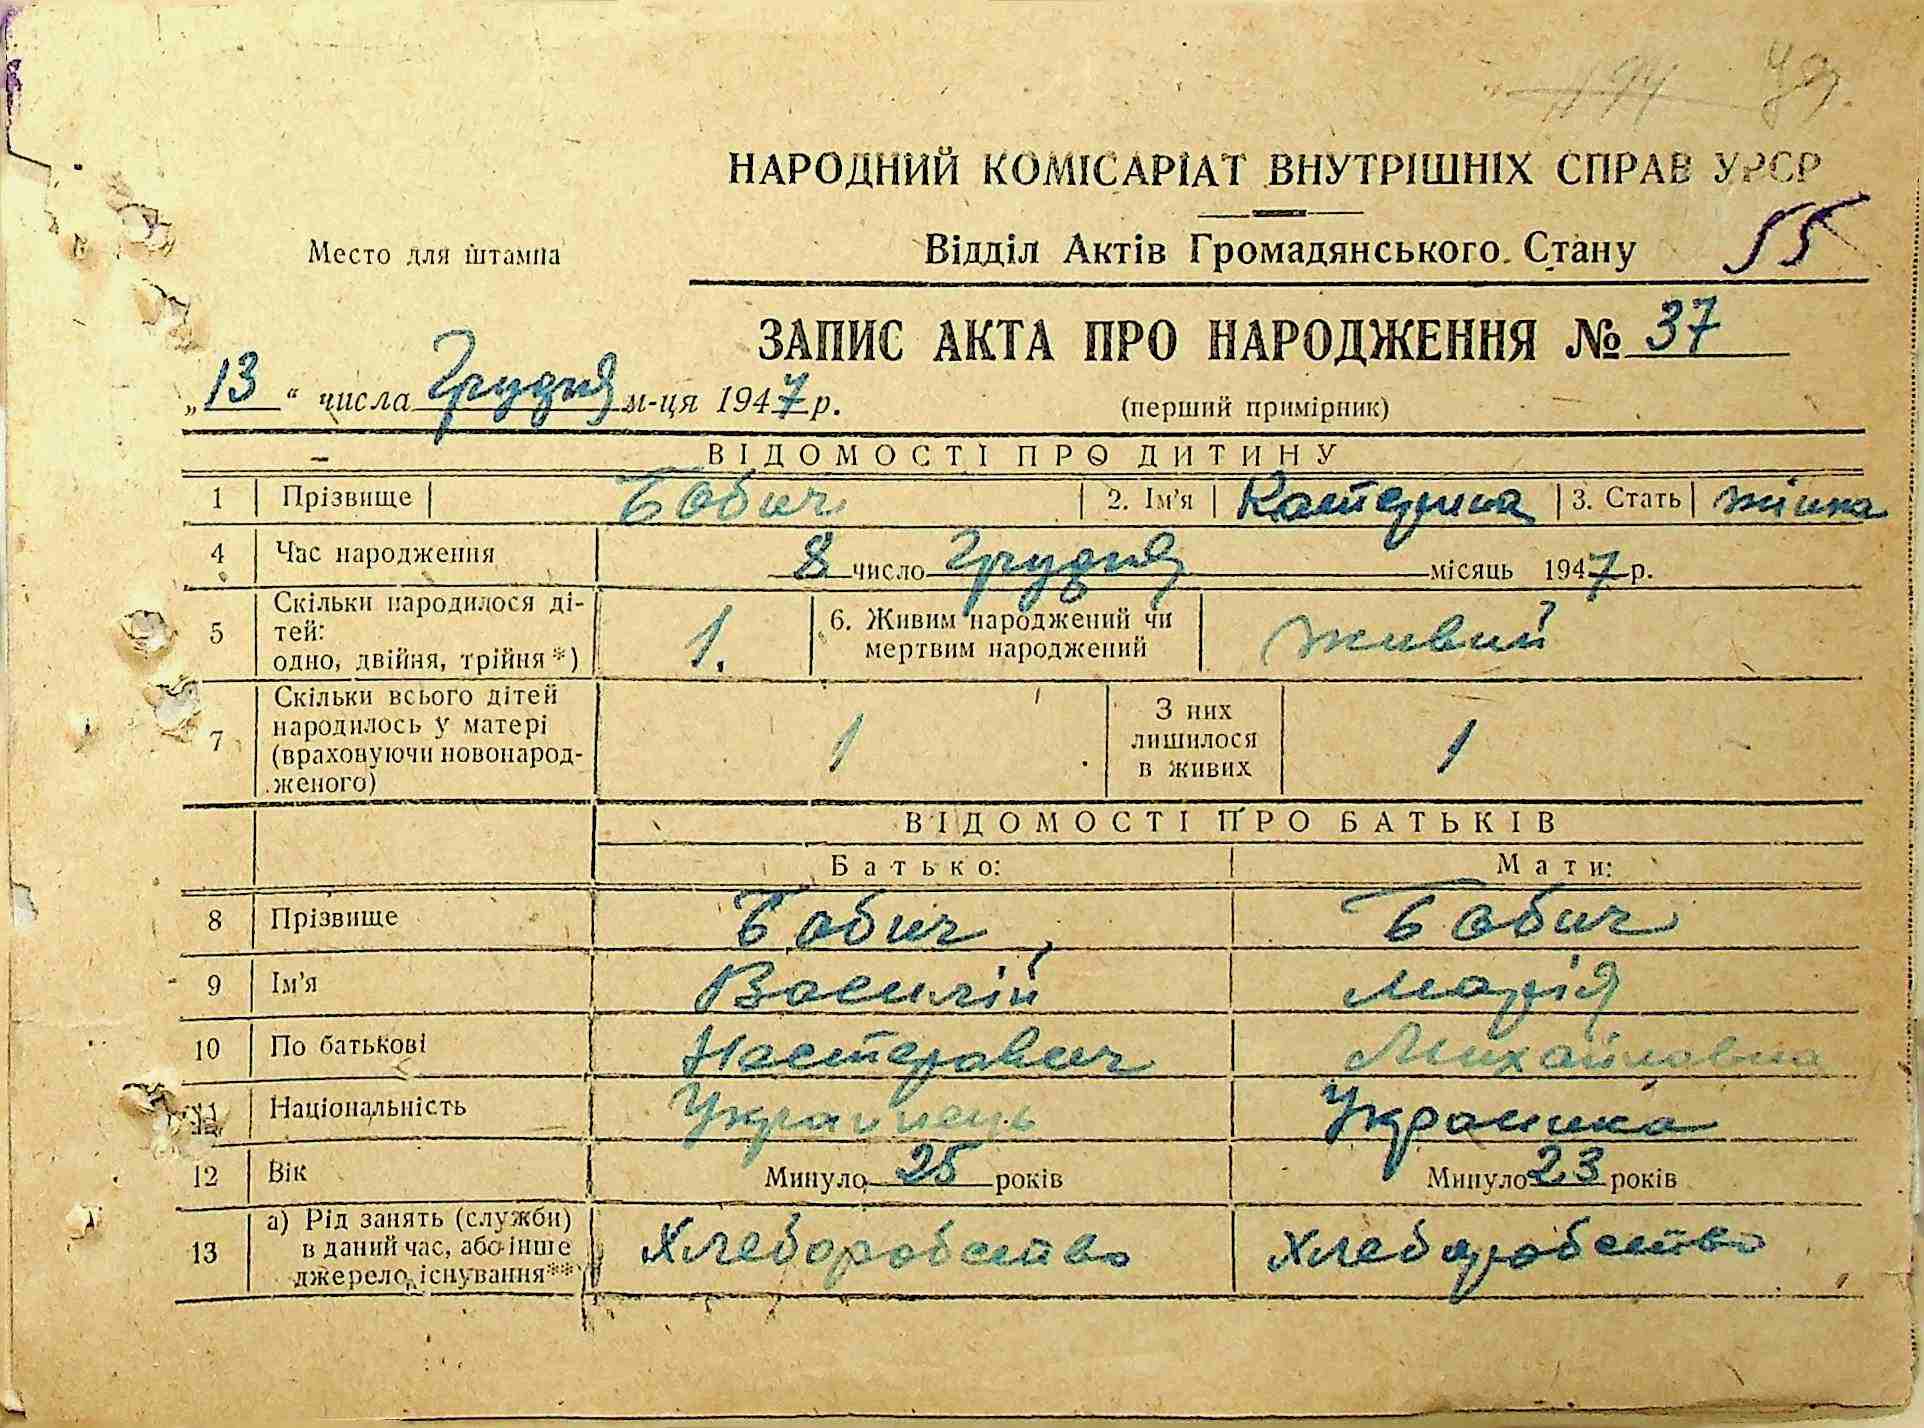 194 49.
НАРОДНИЙ КОМІСАРІАТ ВНУТРІШНІХ СПРАВ УРСР
Место для штампа
Відділ Актів Громадянського Стану 55
ЗАПИС АКТА ПРО НАРОДЖЕННЯ № 37
„13“ числа Грудня м-ця 1947 р.
(перший примірник)
ВІДОМОСТІ ПРО ДИТИНУ
1 Прізвище Бабич 2. Ім'я Катерина 3. Стать жінка
4 Час народження 8 число Грудня місяць 1947 р.
5 Скільки народилося ді-
тей:
одно, двійня, трійня*) 1. 6. Живим народжений чи
мертвим народжений живий
7 Скільки всього дітей
народилось у матері
(враховуючи новонарод-
женого) 1 З них
лишилося
в живих 1
ВІДОМОСТІ ПРО БАТЬКІВ
Батько: Мати:
8 Прізвище Бабич Бабич
9 Ім'я Василій Марія
10 По батькові Нестерович Михайловна
11 Національність Українець Украинка
12 Вік Минуло 25 років Минуло 23 років
13 а) Рід занять (служби)
в даний час, або інше
джерело існування** Хлеборобство Хлеборобство